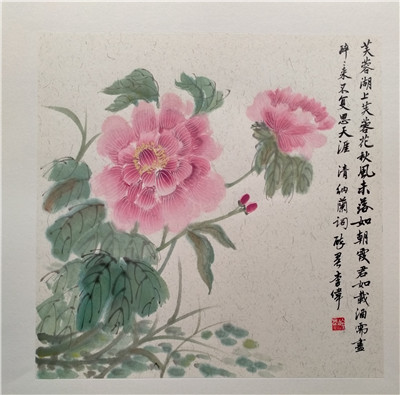 芙蓉湖上芙蓉花秋風未落如朝霞君如載酒需盡
醉〻来不复思天涯 清納蘭詞 李偉